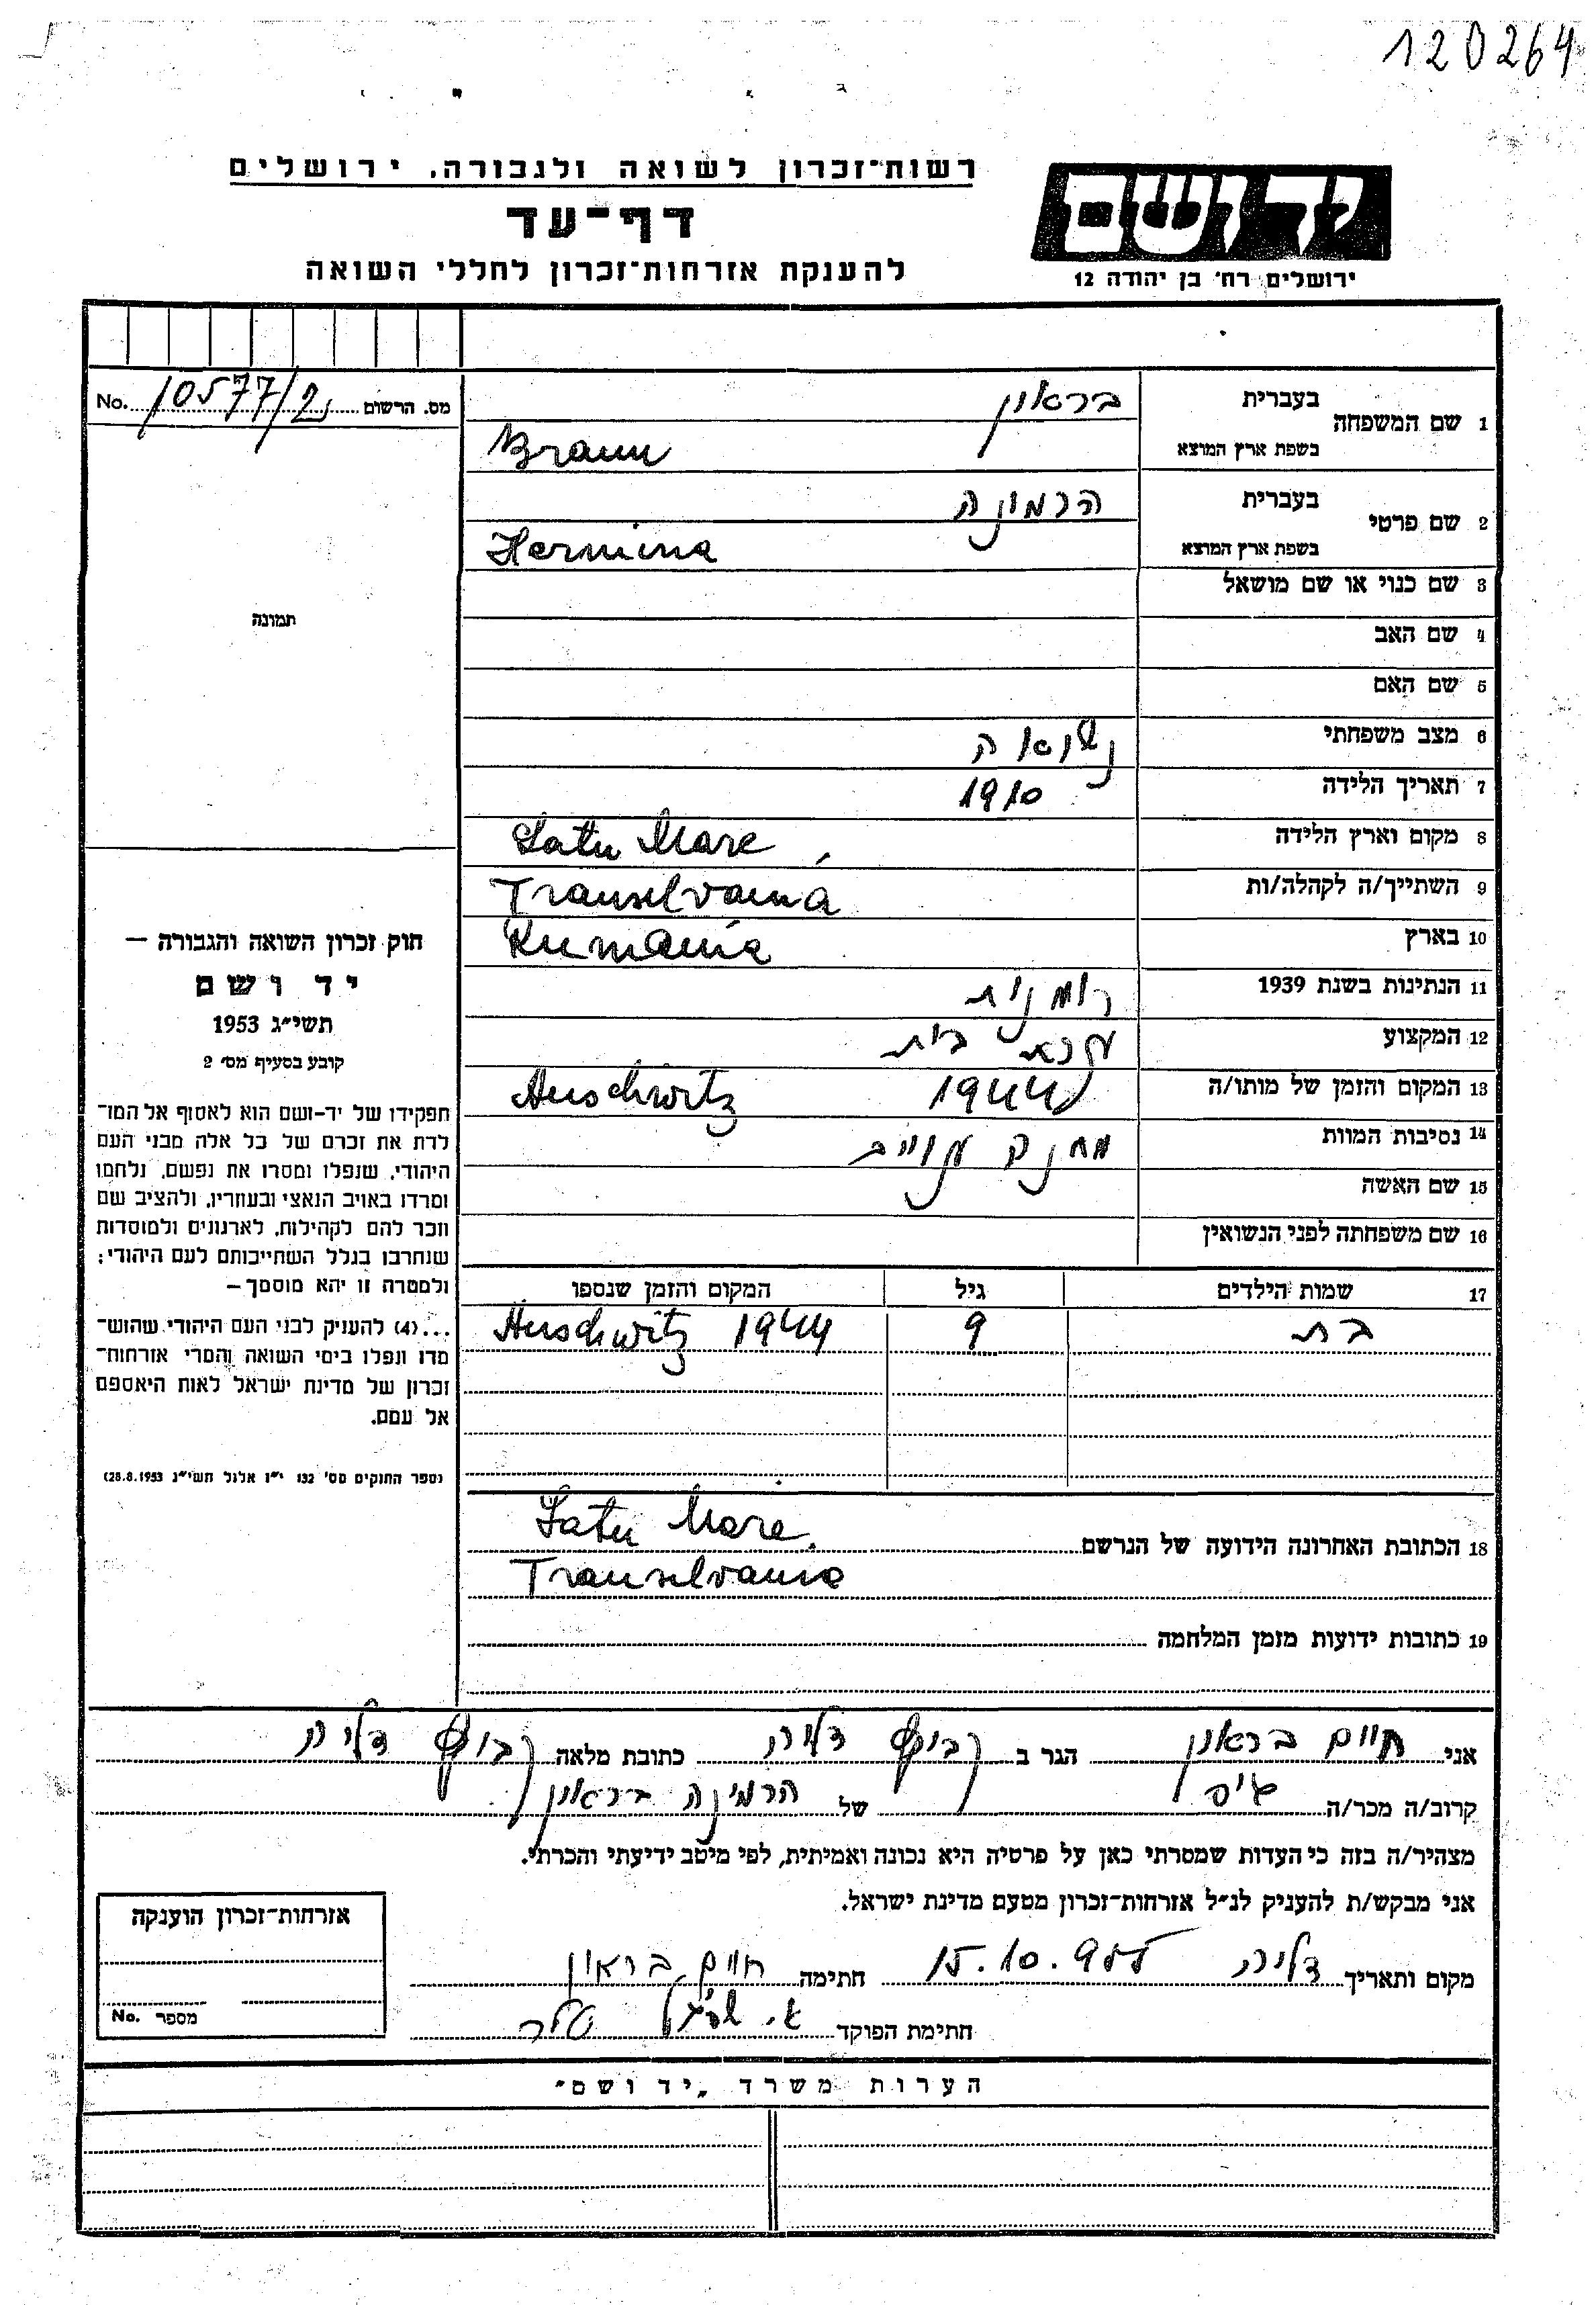 120264
רשות־זכרון לשואה ולגבורה, ירושלים
דף־עד
להענקת אזרחות־זכרון לחללי השואה
יד ושם
ירושלים, רח' בן יהודה 12
מס. הרשום 10577/2 No.
1 שם המשפחה בעברית בראון
בשפת ארץ המוצא Braun
2 שם פרטי בעברית הרמינה
בשפת ארץ המוצא Hermina
3 שם כנוי או שם מושאל
4 שם האב
5 שם האם
6 מצב משפחתי נשואה
7 תאריך הלידה 1910
8 מקום וארץ הלידה Satu Mare,
9 השתייך/ה לקהלה/ות Transelvania
10 בארץ Rumania
11 הנתינות בשנת 1939 רומנית
12 המקצוע עקרת בית
13 המקום והזמן של מותו/ה 1944 Auschwitz
14 נסיבות המוות
15 שם האשה
16 שם משפחתה לפני הנשואין
17 שמות הילדים גיל המקום והזמן שנספו
בת 9 Auschwitz 1944
18 הכתובת האחרונה הידועה של הנרשם Satu Mare,
Transelvania
19 כתובות ידועות מזמן המלחמה
תמונה
חוק זכרון השואה והגבורה –
יד ושם
תשי״ג 1953
קובע בסעיף מס' 2
תפקידו של יד-ושם הוא לאסוף אל המו־
לדת את זכרם של כל אלה מבני העם
היהודי, שנפלו ומסרו את נפשם, נלחמו
ומרדו באויב הנאצי ובעוזריו, ולהציב שם
וזכר להם לקהילות, לארגונים ולמוסדות
שנחרבו בגלל השתייכותם לעם היהודי;
ולמטרה זו יהא מוסמך –
...(4) להעניק לבני העם היהודי שהוש־
מדו ונפלו בימי השואה והמרי אזרחות־
זכרון של מדינת ישראל לאות היאספם
אל עמם.
(ספר החוקים מס' 132 י״ז אלול תשי״ג 28.8.1953)
אני חיים בראון הגר ב קבוץ דליה כתובת מלאה קבוץ דליה
קרוב/ה מכר/ה גיס של הרמינה בראון
מצהיר/ה בזה כי העדות שמסרתי כאן על פרטיה היא נכונה ואמיתית, לפי מיטב ידיעתי והכרתי.
אני מבקש/ת להעניק לנ״ל אזרחות־זכרון מטעם מדינת ישראל.
מקום ותאריך דליה 15.10.955 חתימה חיים בראון
חתימת הפוקד
אזרחות־זכרון הוענקה
מספר No.
הערות משרד „יד ושם״